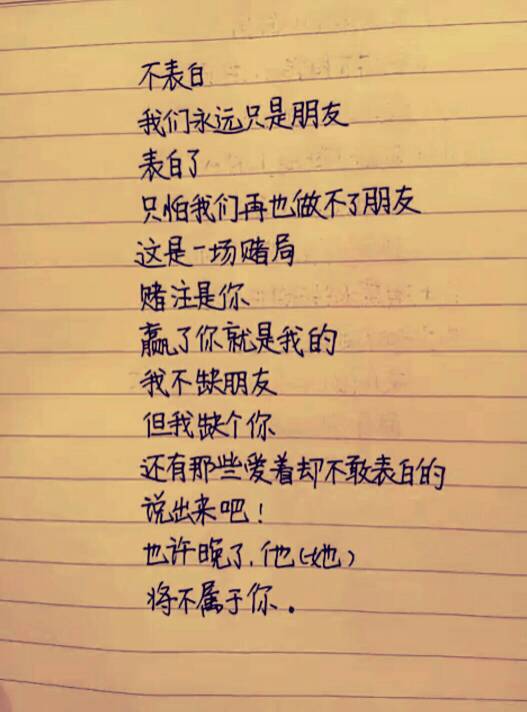 不表白
我们永远只是朋友
表白了
只怕我们再也做不了朋友
这是一场赌局
赌注是你
赢了你就是我的
我不缺朋友
但我缺个你
还有那些爱着却不敢表白的
说出来吧!
也许晚了,他(她)
将不属于你。